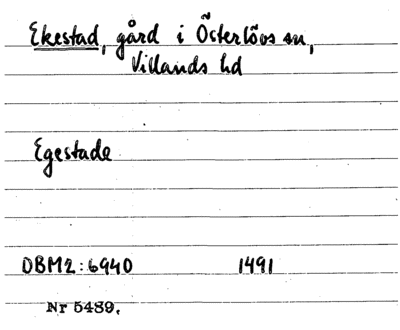 Ekestad, gård i Österlövs sn,
Villands hd
Egestade
DBM2:6940 1491
Nr 5489.